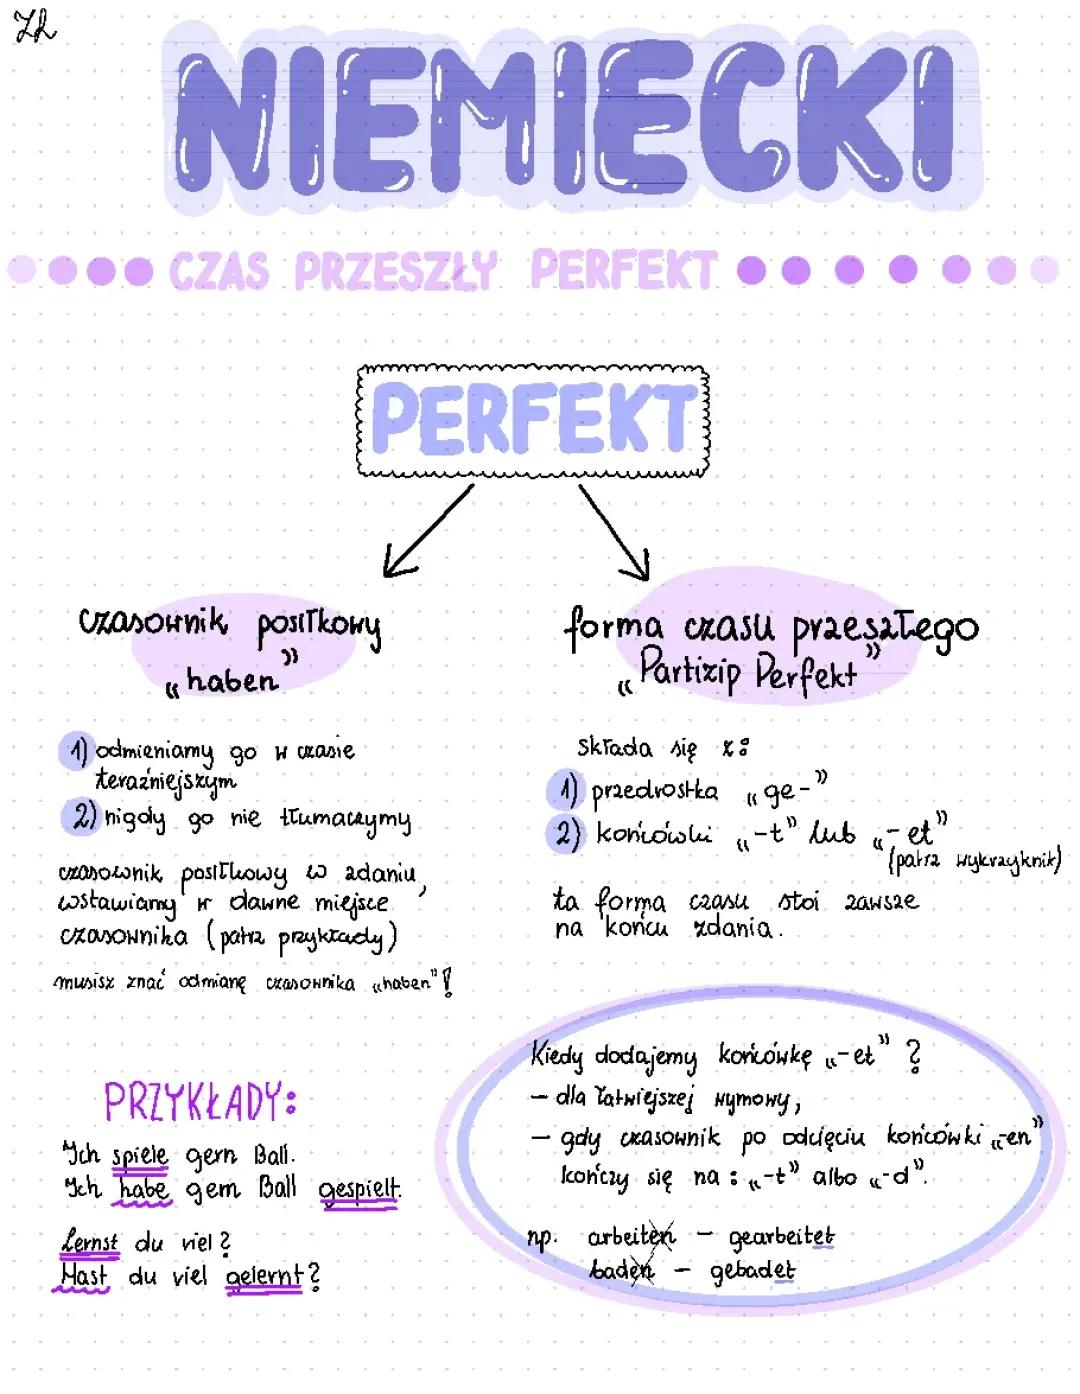 NIEMIECKI
CZAS PRZESZŁY PERFEKT
PERFEKT
czasownik posiłkowy
„haben”
1) odmieniamy go w czasie
teraźniejszym
2) nigdy go nie tłumaczymy
czasownik posiłkowy w zdaniu,
wstawiamy w dawne miejsce
czasownika (patrz przykłady)
musisz znać odmianę czasownika „haben”!
PRZYKŁADY:
Ich spiele gern Ball.
Ich habe gern Ball gespielt.
Lernst du viel?
Hast du viel gelernt?
forma czasu przeszłego
„Partizip Perfekt”
Składa się z:
1) przedrostka „ge-”
2) końcówki „-t” lub „-et”
(patrz wykrzyknik)
ta forma czasu stoi zawsze
na końcu zdania.
Kiedy dodajemy końcówkę „-et” ?
- dla łatwiejszej wymowy,
- gdy czasownik po odcięciu końcówki „-en”
kończy się na: „-t” albo „-d”.
np. arbeiten - gearbeitet
baden - gebadet